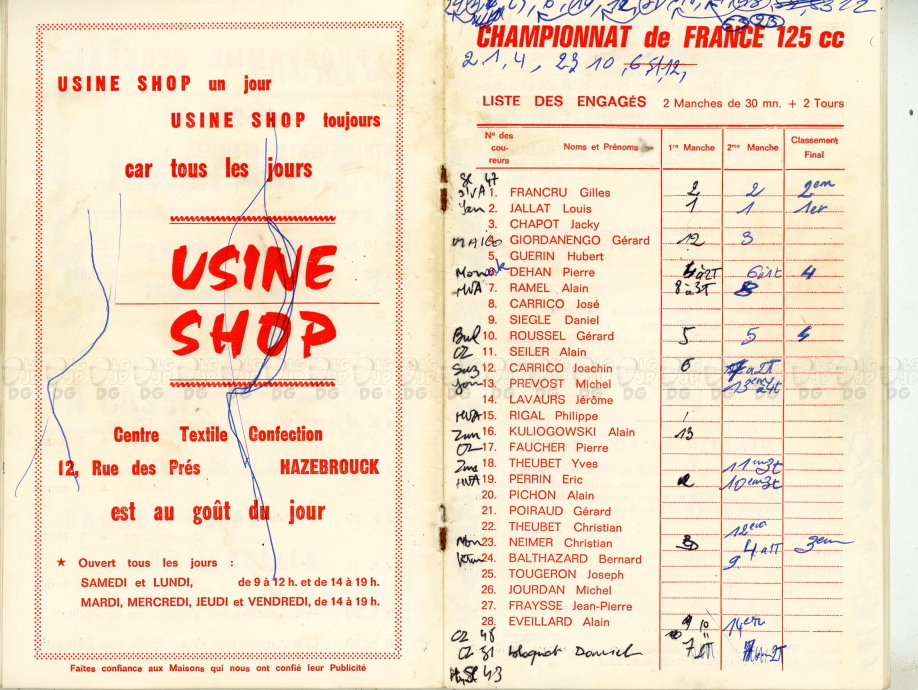 USINE SHOP un jour
USINE SHOP toujours
car tous les jours
USINE
SHOP
Centre Textile Confection
12, Rue des Prés HAZEBROUCK
est au goût du jour
★ Ouvert tous les jours :
SAMEDI et LUNDI, de 9 à 12 h. et de 14 à 19 h.
MARDI, MERCREDI, JEUDI et VENDREDI, de 14 à 19 h.
Faites confiance aux Maisons qui nous ont confié leur Publicité
CHAMPIONNAT de FRANCE 125 cc
2 1, 4, 23 10, 6, 5, 12,
LISTE DES ENGAGÉS 2 Manches de 30 mn. + 2 Tours
N° des coureurs Noms et Prénoms 1re Manche 2me Manche Classement Final
47
1. FRANCRU Gilles 2 2 2em
2. JALLAT Louis 1 1 1er
3. CHAPOT Jacky
MAICO 4. GIORDANENGO Gérard 12 3
5. GUERIN Hubert
6. DEHAN Pierre 4
HVA 7. RAMEL Alain 8 à 3T 8
8. CARRICO José
9. SIEGLE Daniel
Bul 10. ROUSSEL Gérard 5 5
OZ 11. SEILER Alain
Suz 12. CARRICO Joachin 6
13. PREVOST Michel
14. LAVAURS Jérôme
HVA 15. RIGAL Philippe
16. KULIOGOWSKI Alain 13
OZ 17. FAUCHER Pierre
18. THEUBET Yves 11em 3t
HVA 19. PERRIN Eric 10em 3t
20. PICHON Alain
21. POIRAUD Gérard
22. THEUBET Christian 12em
Mon 23. NEIMER Christian 3 4 3em
Ktm 24. BALTHAZARD Bernard 9
25. TOUGERON Joseph
26. JOURDAN Michel
27. FRAYSSE Jean-Pierre
28. EVEILLARD Alain 14em
OZ 48
OZ 31 Daniel
43